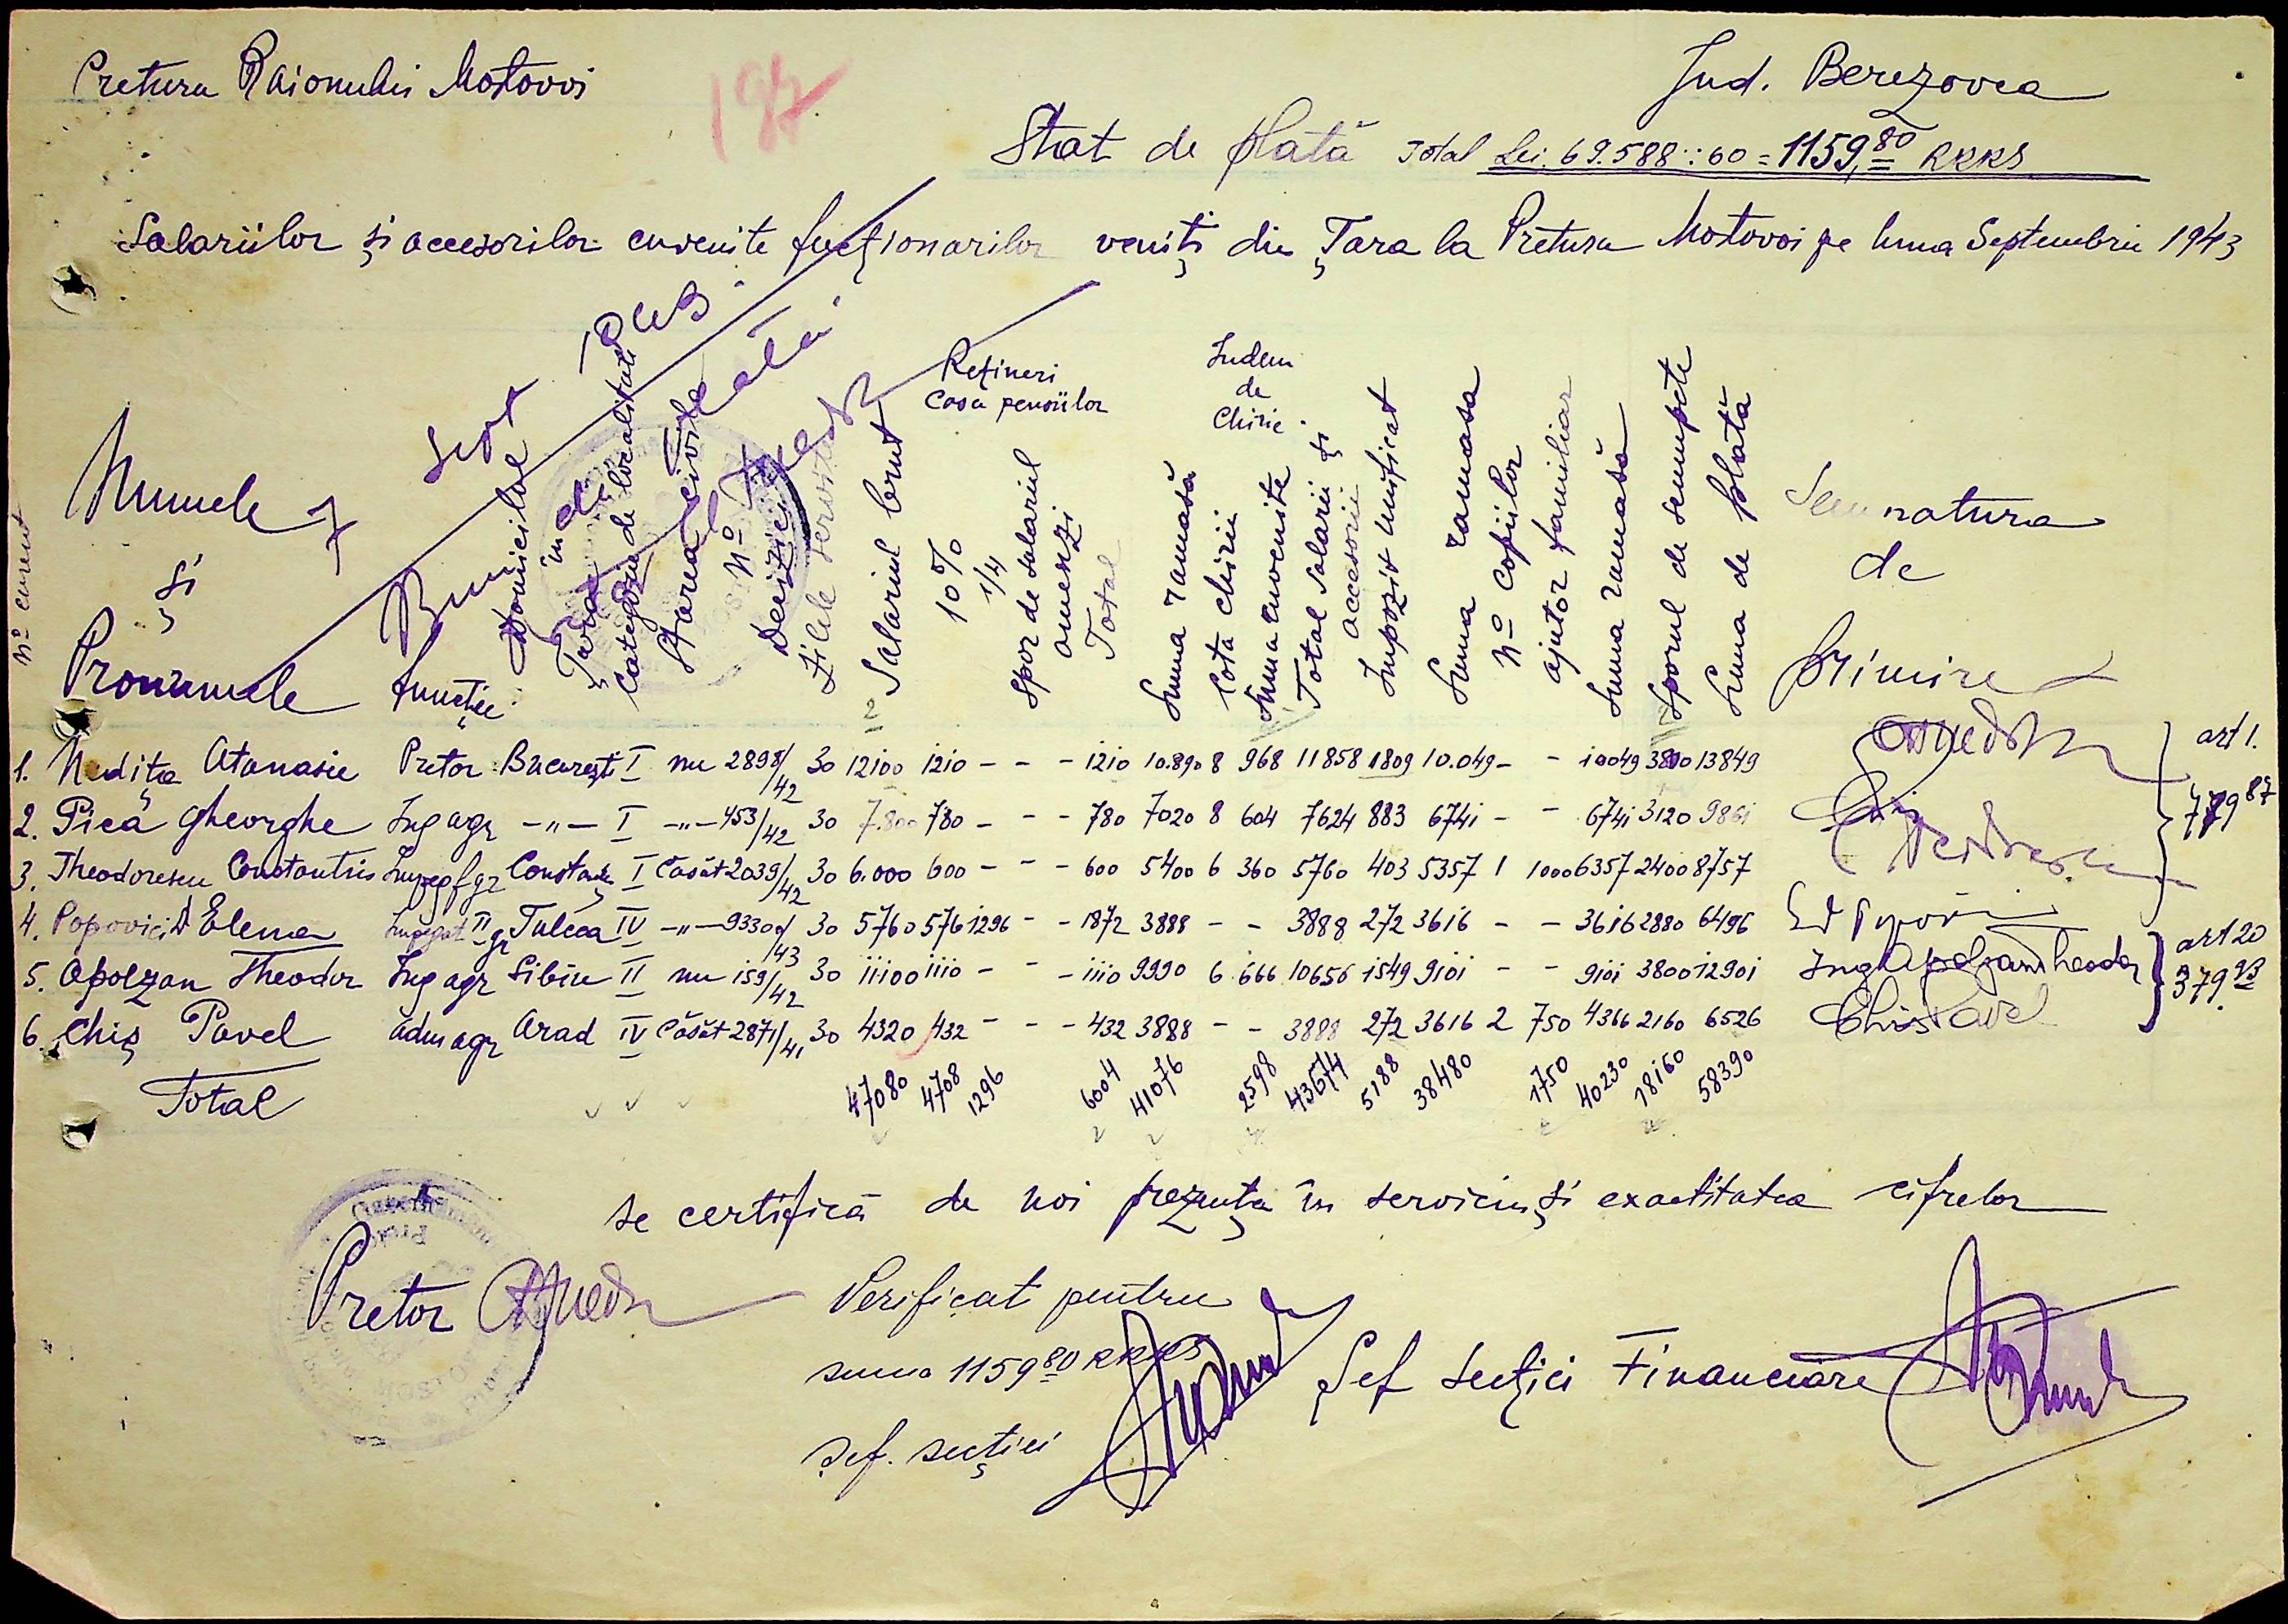 Pretura Raionului Mostovoi
Jud. Berezovca
187
Stat de plată Total Lei. 69.588 : 60 = 1159,80 RKKS
Salariilor și accesorilor cuvenite fucționarilor veniți din Țara la Pretura Mostovoi pe luna Septembrie 1943
Nº curent
Numele
și
Pronumele
funcție
Bun de plată
Domicilul în Țară
Categoria de localitate
Starea civilă
Nº Deciziei
Zilele servite
Salariul brut
Rețineri
Casa pensiilor
10%
1/4
Spor de salariul
amenzi
Total
Suma ramasă
Indem
de
Chirie
Cota chirii
Suma cuvenite
Total Salarii și accesorii
Impozit unificat
Suma ramasa
Nº Copiilor
ajutor familiar
Suma ramasă
Sporul de scumpete
Suma de plată
Semnatura
de
primire
1. Nedița Atanasie Pretor București I nu 2898/42 30 12100 1210 - - - 1210 10.890 8 968 11858 1809 10.049 - - 10049 3800 13849
2. Pică Gheorghe Ing agr -"- I -"- 453/42 30 7.800 780 - - - 780 7020 8 604 7624 883 6741 - - 6741 3120 9861
3. Theodorescu Constantin Constanța I Căsăt 2039/42 30 6.000 600 - - - 600 5400 6 360 5760 403 5357 1 1000 6357 2400 8757
4. Popovici Elena II gr Tulcea IV -"- 9330/43 30 5760 576 1296 - - 1872 3888 - - 3888 272 3616 - - 3616 2880 6496
5. Apolzan Theodor Ing agr Sibiu II nu 159/42 30 11100 1110 - - - 1110 9990 6 666 10656 1549 9101 - - 9101 3800 12901 Ing Apolzan Theodor
6. Chiș Pavel adm agr Arad IV Căsăt 2871/41 30 4320 432 - - - 432 3888 - - 3888 272 3616 2 750 4366 2160 6526 Chis Pavel
art 1.
779 87
art 20
379 93
Total 47080 4708 1296 6004 41076 2598 43674 5188 38480 1750 40230 18160 58390
se certifică de noi prezența în serviciu și exactitatea cifrelor
Pretor
Verificat pentru
suma 1159 80 RKKS
Șef. secției
Șef Secției Financiare